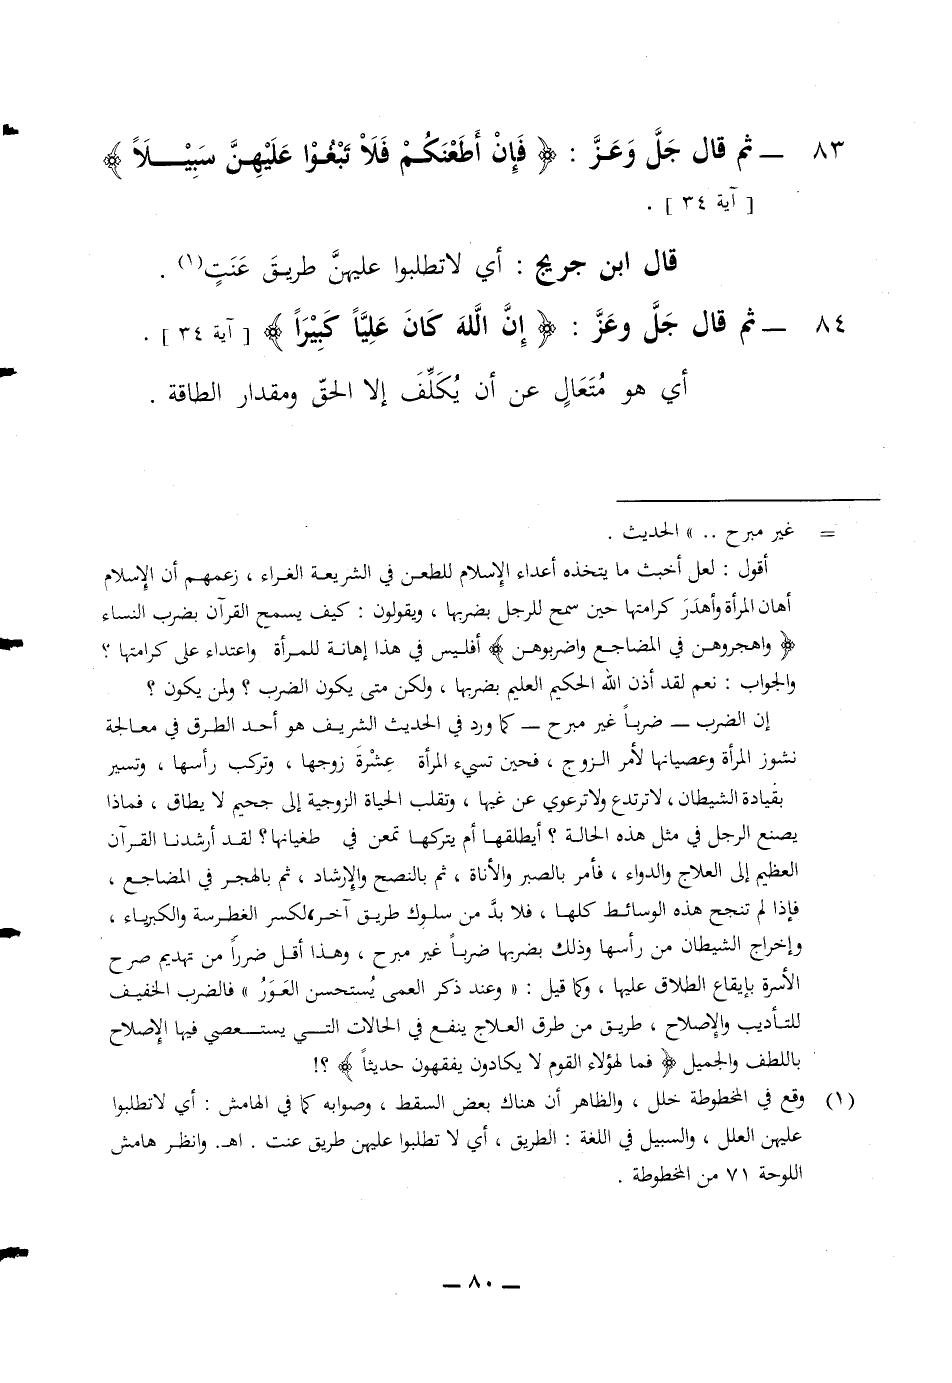 ٨٣ — ثم قال جَلَّ وَعَزَّ : ﴿ فَإِنْ أَطَعْنَكُمْ فَلَاْ تَبْغُوْا عَلَيْهِنَّ سَبِيْلَاً ﴾
[ آية ٣٤ ] .
قال ابن جريج : أي لاتطلبوا عليهنَّ طريقَ عَنَتٍ(١) .
٨٤ — ثم قال جَلَّ وعَزَّ : ﴿ إِنَّ اللَّهَ كَانَ عَلِيَّاً كَبِيْرَاً ﴾ [ آية ٣٤ ] .
أي هو مُتَعَالٍ عن أن يُكَلِّفَ إلا الحقّ ومقدار الطاقة .
= غير مبرح .. » الحديث .
أقول : لعل أخبث ما يتخذه أعداء الإسلام للطعن في الشريعة الغراء ، زعمهم أن الإسلام
أهان المرأة وأهدَرَ كرامتها حين سمح للرجل بضربها ، ويقولون : كيف يسمح القرآن بضرب النساء
﴿ واهجروهن في المضاجع واضربوهن ﴾ أفليس في هذا إهانة للمرأة واعتداء على كرامتها ؟
والجواب : نعم لقد أذن الله الحكيم العليم بضربها ، ولكن متى يكون الضرب ؟ ولمن يكون ؟
إن الضرب — ضرباً غير مبرح — كما ورد في الحديث الشريف هو أحد الطرق في معالجة
نشوز المرأة وعصيانها لأمر الزوج ، فحين تسيء المرأة عِشْرةَ زوجها ، وتركب رأسها ، وتسير
بقيادة الشيطان ، لاترتدع ولاترعوي عن غيها ، وتقلب الحياة الزوجية إلى جحيم لا يطاق ، فماذا
يصنع الرجل في مثل هذه الحالة ؟ أيطلقها أم يتركها تمعن في طغيانها ؟ لقد أرشدنا القرآن
العظيم إلى العلاج والدواء ، فأمر بالصبر والأناة ، ثم بالنصح والإرشاد ، ثم بالهجر في المضاجع ،
فإذا لم تنجح هذه الوسائط كلها ، فلا بدَّ من سلوك طريق آخر، لكسر الغطرسة والكبرياء ،
وإخراج الشيطان من رأسها وذلك بضربها ضرباً غير مبرح ، وهذا أقل ضرراً من تهديم صرح
الأسرة بإيقاع الطلاق عليها ، وكما قيل : « وعند ذكر العمى يُستحسن العَوَرُ » فالضرب الخفيف
للتأديب والإصلاح ، طريق من طرق العلاج ينفع في الحالات التي يستعصي فيها الإصلاح
باللطف والجميل ﴿ فما لهؤلاء القوم لا يكادون يفقهون حديثاً ﴾ ؟!
(١) وقع في المخطوطة خلل ، والظاهر أن هناك بعض السقط ، وصوابه كما في الهامش : أي لاتطلبوا
عليهن العلل ، والسبيل في اللغة : الطريق ، أي لا تطلبوا عليهن طريق عنت . اهـ. وانظر هامش
اللوحة ٧١ من المخطوطة .
— ٨٠ —